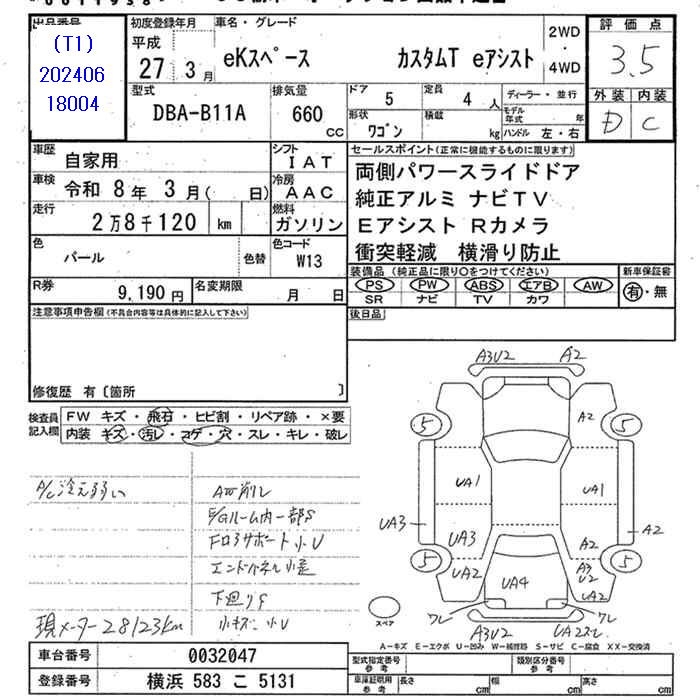 出品番号
(T1)
202406
18004
初度登録年月
平成
27年 3月
車名・グレード
eKスペース カスタムT eアシスト
2WD
・
4WD
評価点
3.5
外装 内装
D C
型式
DBA-B11A
排気量
660
cc
ドア
5
定員
4人
形状
ワゴン
積載
kg
ディーラー・並行
モデル年式 年
ハンドル 左・右
車歴
自家用
シフト
IAT
車検
令和 8年 3月( 日)
冷房
AAC
走行
2万8千120 km
燃料
ガソリン
色
パール
色替
色コード
W13
R券
9,190円
名変期限
月 日
セールスポイント(正常に機能するものに限ります)
両側パワースライドドア
純正アルミ ナビTV
Eアシスト Rカメラ
衝突軽減 横滑り防止
装備品(純正品に限り〇をつけてください)
PS PW ABS エアB AW
SR ナビ TV カワ
新車保証書
有・無
後日品
注意事項申告欄(不具合内容等は具体的に記入して下さい)
修復歴 有〔箇所 〕
検査員
記入欄
FW キズ・飛石・ヒビ割・リペア跡・×要
内装 キズ・汚レ・コゲ・穴・スレ・キレ・破レ
A/C冷え弱い
A皿削レ
E/Gルーム内一部S
Fロアサポート小U
エンドパネル小歪
下廻りS
小キズ、小U
現メーター28123km
A3U2 A2
5 A2 5
UA1 UA1
UA3 UA3 A2
A2
5 UA2 A3 U2 UA2 5
UA4
ワレ ワレ
A3U2 UA2スレ
スペア
A-キズ E-エクボ U-凹み W-補修跡 S-サビ C-腐食 XX-交換済
車台番号 0032047
登録番号 横浜 583 こ 5131
型式指定番号
参考
類別区分番号
参考
車庫証明用
参考
長さ cm 幅 cm 高さ cm